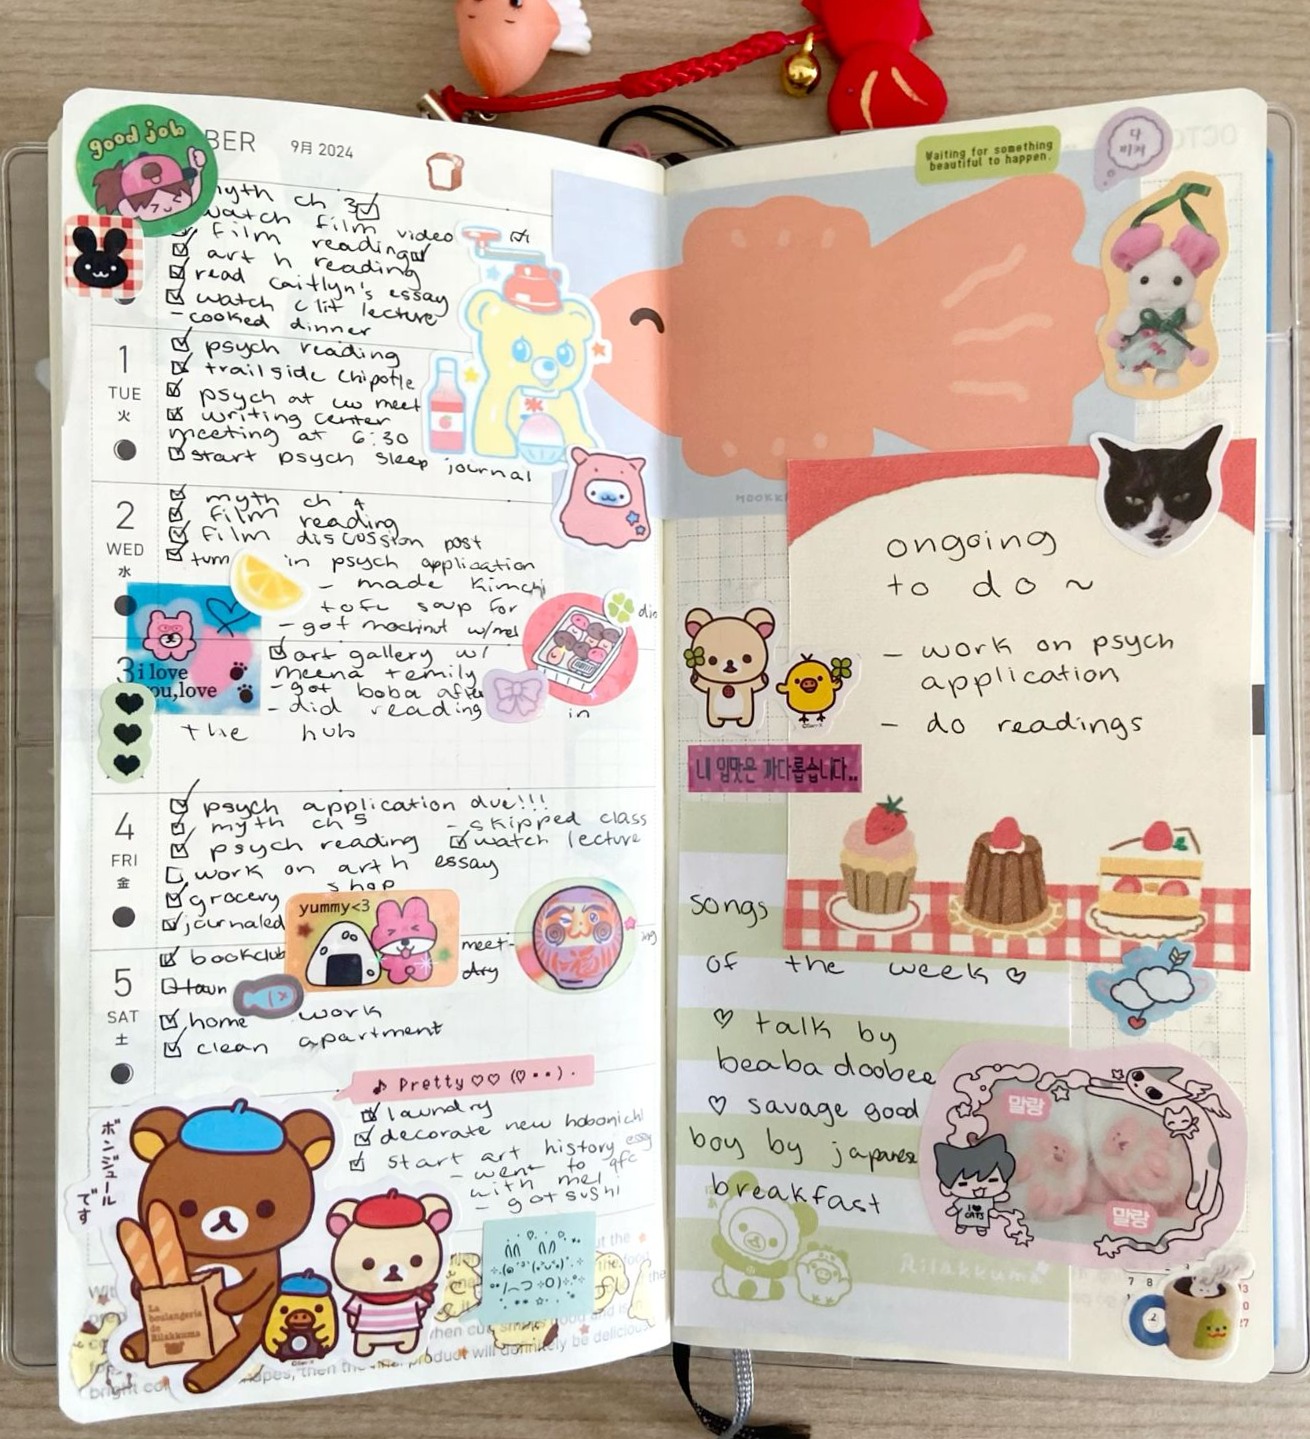 good job
BER
9月 2024
myth ch 3
watch film video
film reading
art h reading
read caitlyn's essay
watch c lit lecture
- cooked dinner
1
TUE
火
psych reading
trailside chipotle
psych at uw meet
writing center
meeting at 6:30
start psych sleep journal
2
WED
水
myth ch 4
film reading
film discussion post
turn in psych application
- made kimchi
tofu soup for
- got mochinut w/mel
3
i love
you,love
art gallery w/
meena + emily
- got boba after
- did reading in
the hub
4
FRI
金
psych application due!!!
myth ch 5
- skipped class
psych reading
watch lecture
work on art h essay
grocery shop
journaled
yummy<3
5
SAT
土
bookclub meet-
ing
home work
clean apartment
♪ Pretty♡♡
laundry
decorate new hobonichi
start art history essay
- went to qfc
with mel
- got sushi
ボンジュール
です
La
boulangerie
de
Rilakkuma
product will definitely be delicious
Waiting for something
beautiful to happen.
ongoing
to do ~
- work on psych
application
- do readings
내 입맛은 까다롭습니다..
songs
of the week ♡
♡ talk by
beabadoobee
♡ savage good
boy by japanese
breakfast
말랑
말랑
I ♥
CATS
Rilakkuma